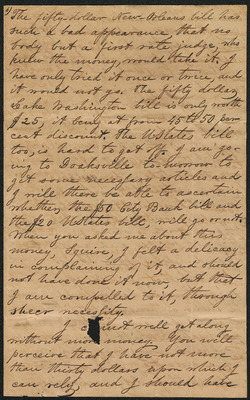 4) The fifty dollar New Orleans bill has
such a bad appearance, that no
body but a first rate judge, who
knew the money, would take it. I
have only tried it once or twice, and
it would not go. The fifty dollar
Lake Washington bill is only worth
$25, it being at from 45 to 50 per
cent discount. The U States bill
too, is hard to get off. I am go-
ing to Doaksville to-morrow to
get some necessary articles and
I will there be able to ascertain
whether the $50 City Bank bill and
the $20 U States bill, will go or not.
When you asked me about this
money, Squire, I felt a delicacy
in complaining of it, and should
not have done it now, but that
I am compelled to it, through
sheer necessity.
I cannot well get along
without more money. You will
perceive that I have not more
than thirty dollars upon which I
can rely, and I should have